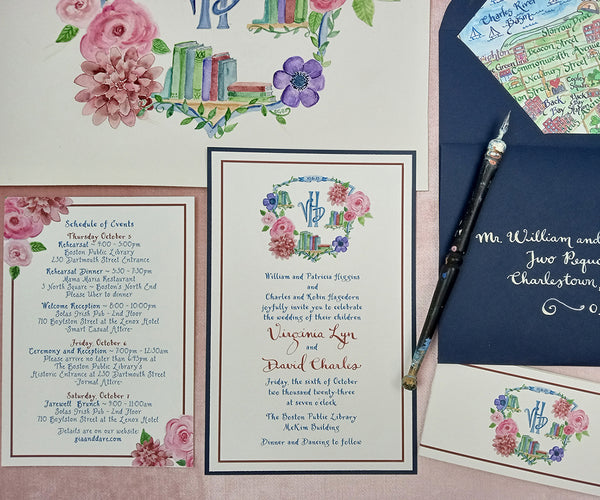 VHD
Charles River
Basin
Storrow Drive
Beacon Street
Commonwealth Avenue
Newbury Street
Copley
Back
Bay
Schedule of Events
Thursday October 5
Rehearsal ~ 4:00 - 5:00pm
Boston Public Library
230 Dartmouth Street Entrance
Rehearsal Dinner ~ 5:30 - 7:30pm
Mama Maria Restaurant
3 North Square ~ Boston's North End
Please Uber to dinner
Welcome Reception ~ 8:00 - 11:00pm
Solas Irish Pub - 2nd Floor
710 Boylston Street at the Lenox Hotel
-Smart Casual Attire-
Friday, October 6
Ceremony and Reception ~ 7:00pm - 12:30am
Please arrive no later than 6:45pm at
The Boston Public Library's
Historic Entrance at 230 Dartmouth Street
-Formal Attire-
Saturday, October 7
Farewell Brunch ~ 9:00 - 11:00am
Solas Irish Pub - 2nd Floor
710 Boylston Street at the Lenox Hotel
Details are on our website:
giaanddave.com!
VHD
William and Patricia Higgins
and
Charles and Robin Hagedorn
joyfully invite you to celebrate
the wedding of their children
Virginia Lyn
and
David Charles
Friday, the sixth of October
two thousand twenty-three
at seven o'clock
The Boston Public Library
McKim Building
Dinner and Dancing to follow
Mr. William and
Two Pequo
Charlestown,
VHD